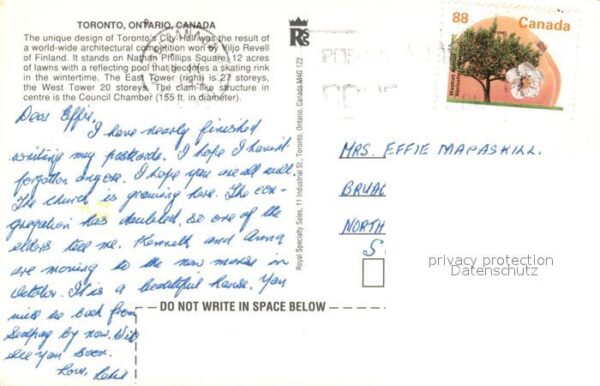 TORONTO, ONTARIO, CANADA
The unique design of Toronto's City Hall was the result of
a world-wide architectural competition won by Viljo Revell
of Finland. It stands on Nathan Phillips Square, 12 acres
of lawns with a reflecting pool that becomes a skating rink
in the wintertime. The East Tower (right) is 27 storeys,
the West Tower 20 storeys. The clam-like structure in
centre is the Council Chamber (155 ft. in diameter).
Dear Effie,
I have nearly finished
writing my postcards. I hope I haven't
forgotten anyone. I hope you are all well.
The church is growing here. The con-
gregation has doubled, so one of the
elders tell me. Kenneth and Anna
are moving to the new manse in
October. It is a beautiful house. You
will be back from
by now. Will
see you soon.
Love,
Royal Specialty Sales, 11 Industrial St., Toronto, Ontario, Canada M4G 1Z2
CANADA
88 Canada
MRS. EFFIE MACASKILL.
BRUAL
NORTH
S
privacy protection
Datenschutz
DO NOT WRITE IN SPACE BELOW